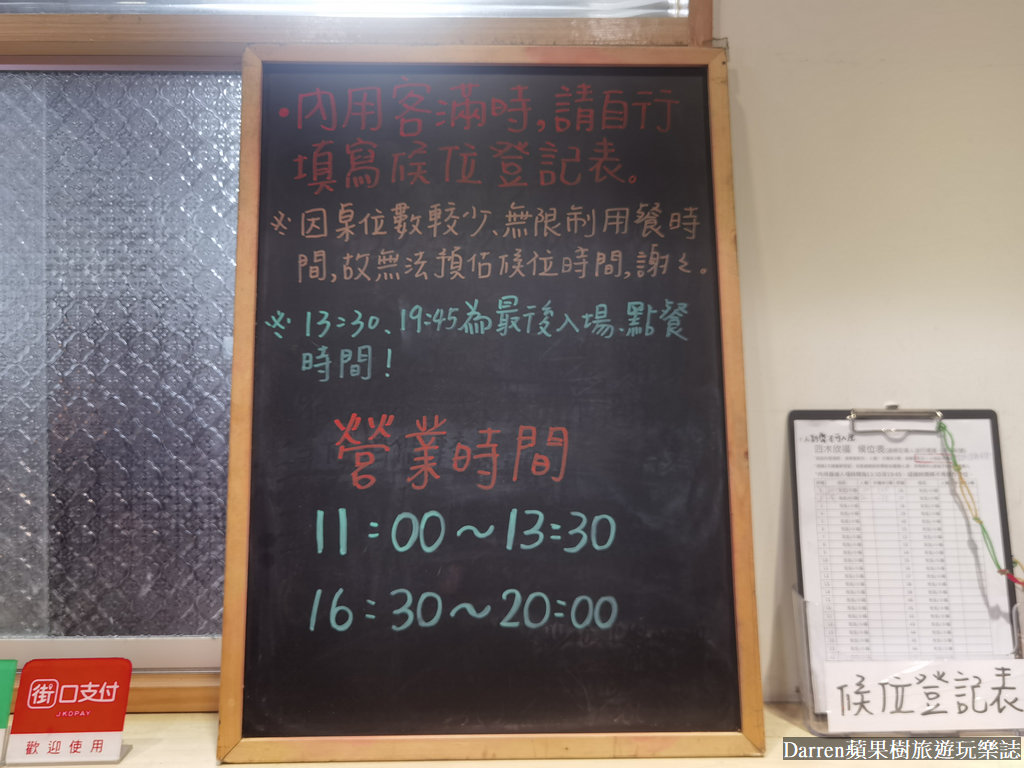 •內用客滿時,請自行
填寫候位登記表。
※因桌位數較少、無限制用餐時
間,故無法預估候位時間,謝之。
※13:30、19:45為最後入場、點餐
時間!
營業時間
11:00~13:30
16:30~20:00
街口支付
JKOPAY
歡迎使用
候位表
候位登記表
Darren蘋果樹旅遊玩樂誌